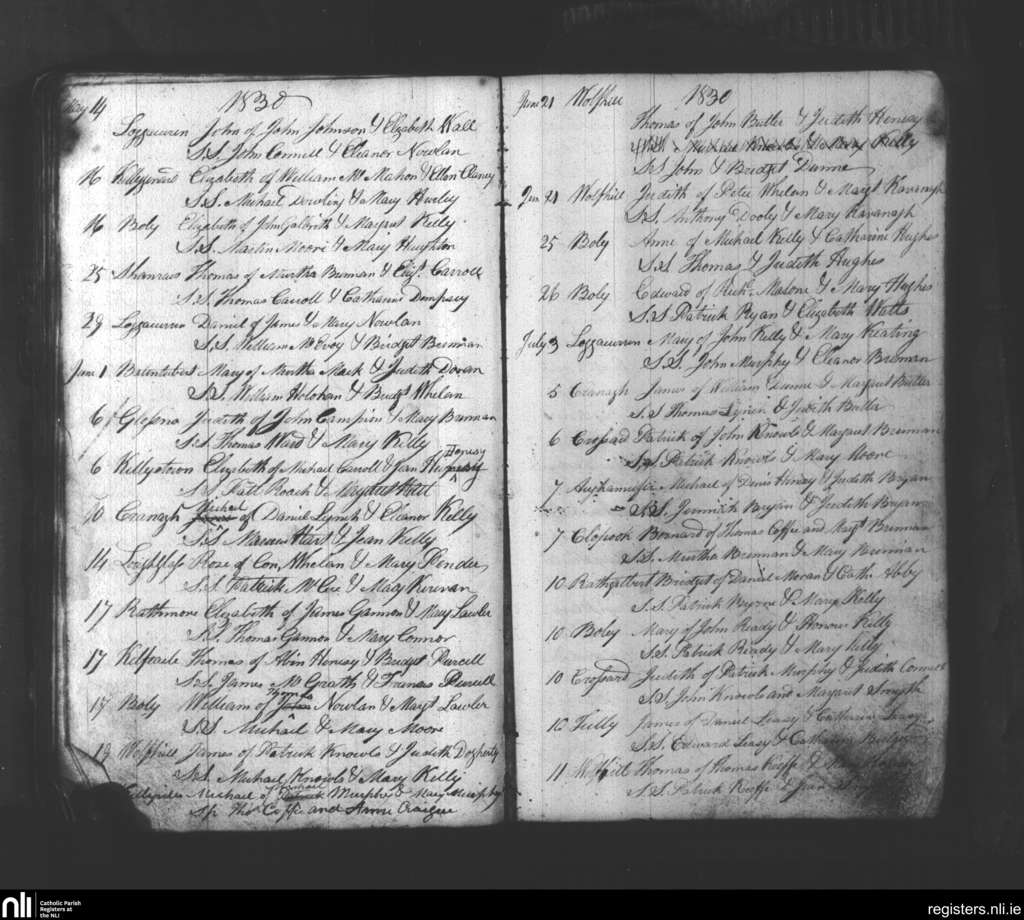 May 14 1830
Loggacurren John of John Johnson & Elizabeth Wall
S.S. John Connell & Eleanor Nowlan
16 Elizabeth of William Mc Mahon & Ellen Clancy
S.S. Michael Dowling & Mary Hurley
16 Boly Elizabeth of John Galbrith & Margaret Kelly
S.S. Martin Moore & Mary Hughton
25 Shanrass Thomas of Murtha Brennan & Elizt. Carroll
S.S. Thomas Carroll & Catharine Dempsey
29 Loggacurren Daniel of James & Mary Nowlan
S.S. William McEvoy & Bridget Brennan
June 1 Mary of Murtha Mack & Judith Doran
S.S. William Holohan & Bridgt Whelan
6 Judith of John Campion & Mary Brennan
S.S. Thomas Ward & Mary Kelly
Honesy
6 Killyetown Elizabeth of Michael Carroll & Jean
S.S. Patt Roach & Margaret
Michael
10 Cranagh of Daniel Lynch & Eleanor Kelly
S.S. Hart & Jean Kelly
14 Rose of Con. Whelan & Mary Pender
S.S. Patrick Mc & Mary Kerevan
17 Rathmore Elizabeth of James Gannon & Mary Lawler
S.S. Thomas Gannon & Mary Connor
17 Kilfeacle Thomas of Abin Henesy & Bridget Purcell
S.S. James McGrath & Frances Purcell
17 Boly William of Nowlan & Margt Lawler
S.S. Michael & Mary Moore
19 Wolfhill James of Patrick Knowls & Judith Dogherty
S.S. Michael Knowls & Mary Kelly
Michael of Murphy & Mary Murphy
Sp. Thos Coffe and Anne Craigue
June 21 Wolfhill 1830
Thomas of John Butler & Judith Henesy
Knowls & Mary Kelly
S.S. John & Bridget Dunne
Jun 21 Wolfhill Judith of Peter Whelan & Margt Kavanagh
S.S. Anthony Dooly & Mary Kavanagh
25 Boly Anne of Michael Kelly & Catharine Hughes
S.S. Thomas & Judith Hughes
26 Boly Edward of Richd. Masone & Mary Hughes
S.S. Patrick Ryan & Elizabeth Watts
July 3 Loggacurren Mary of John Kelly & Mary Keating
S.S. John Murphy & Eleanor Brennan
5 Cranagh James of William Dunne & Margaret Butler
S.S. Thomas Lynch & Judith Butler
6 Crossard Patrick of John Knowls & Margaret Brennan
S.S. Patrick Knowls & Mary Moore
7 Michael of Denis Henesy & Judith Bryan
S.S. Jermiah Bryan & Judith Bryan
7 Clopook Bernard of Thomas Coffie and Margt Brennan
S.S. Murtha Brennan & Mary Brennan
10 Rathgilbert Bridget of Daniel Moran & Cathe. Toby
S.S. Patrick Byrne & Mary Kelly
10 Boley Mary of John Ready & Honour Kelly
S.S. Patrick Ready & Mary Kelly
10 Crossard Judith of Patrick Murphy & Judith Connell
S.S. John Knowls and Margaret Smyth
10 Tully James of Daniel Leasy & Catharine Leasy
S.S. Edward Leasy & Catharine
11 Wolfhill Thomas of Thomas Keeffe &
S.S. Patrick Keeffe &
nli Catholic Parish
Registers at
the NLI
registers.nli.ie